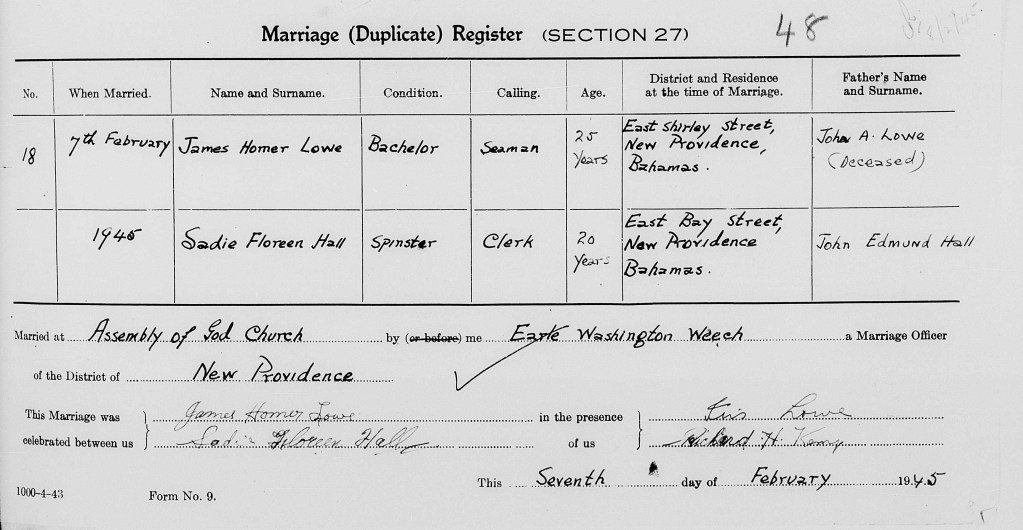 Marriage (Duplicate) Register (SECTION 27)
48
No. When Married. Name and Surname. Condition. Calling. Age. District and Residence at the time of Marriage. Father's Name and Surname.
18 7th February James Homer Lowe Bachelor Seaman 25 Years East Shirley Street, New Providence, Bahamas. John A. Lowe (Deceased)
1945 Sadie Floreen Hall Spinster Clerk 20 Years East Bay Street, New Providence Bahamas. John Edmund Hall
Married at Assembly of God Church by (or before) me Earle Washington Weech a Marriage Officer
of the District of New Providence
This Marriage was James Homer Lowe in the presence Lowe
celebrated between us Sadie Floreen Hall of us Richard H. Kemp
This Seventh day of February 1945
1000-4-43 Form No. 9.